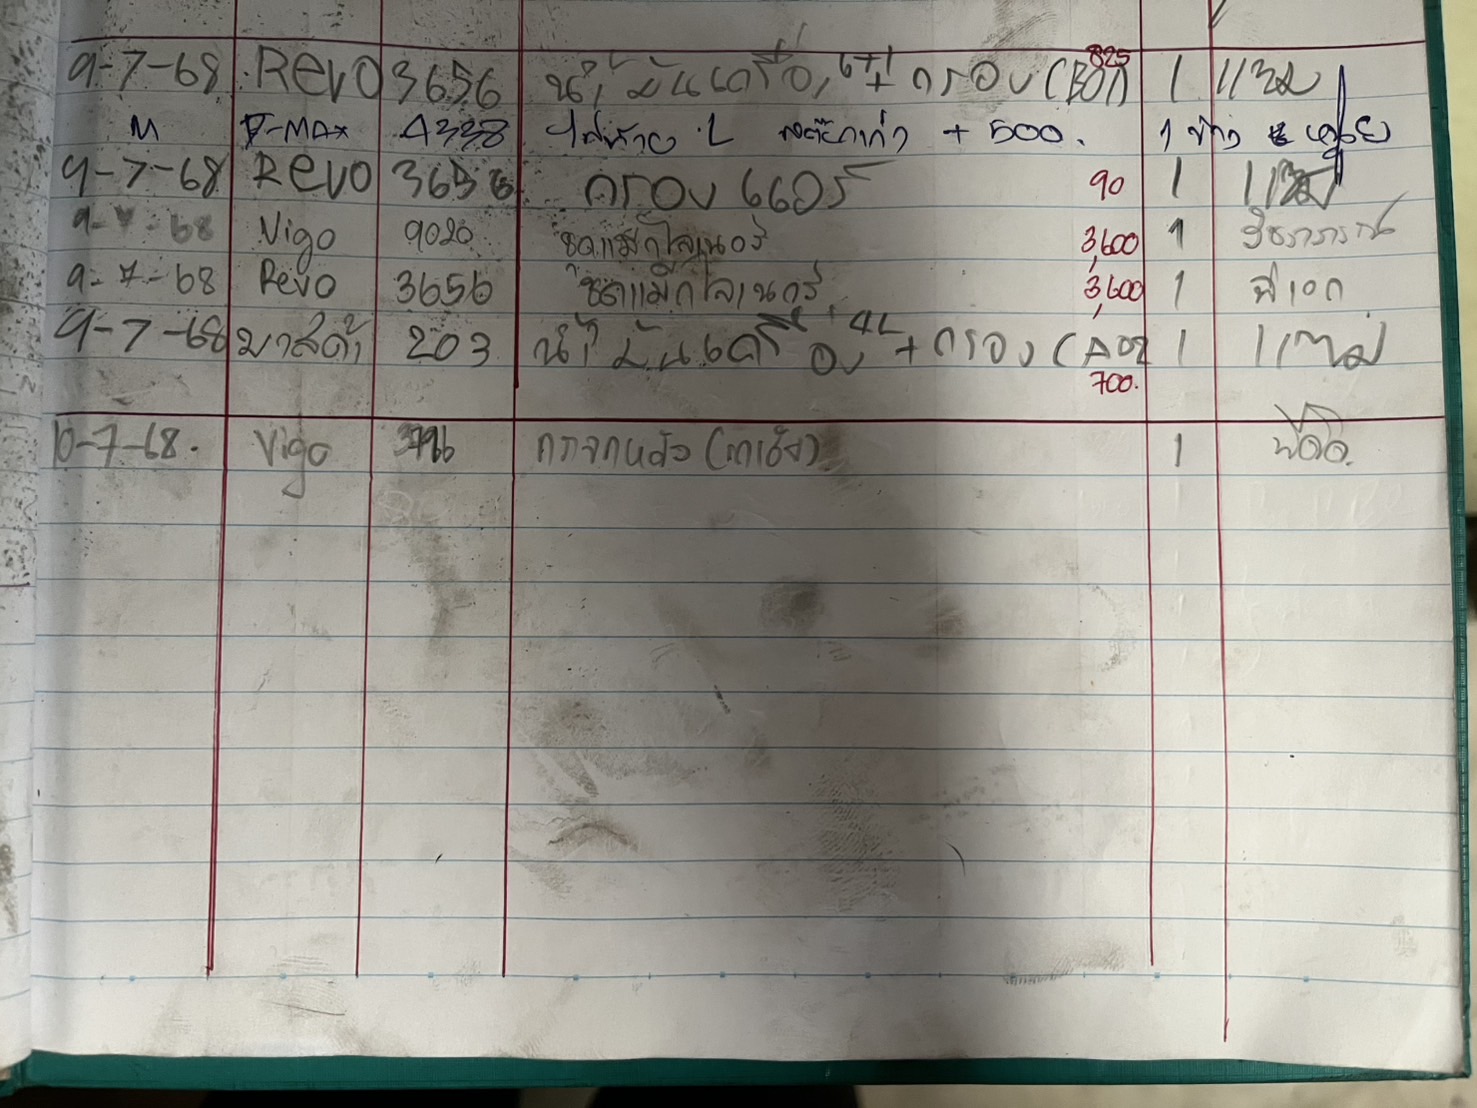 9-7-68 Revo 3656 น้ำมันเครื่อง 6+1 + กรอง (B01) 825 1 แขม
M V-MAX 4338 ไฟท้าย L + 500. 1 ข้าง
9-7-68 Revo 3656 กรองแอร์ 90 1
9-7-68 Vigo 9020 ชุดแม็กไลเนอร์ 3,600 1
9-7-68 Revo 3656 ชุดแม็กไลเนอร์ 3,600 1 พี่เอก
9-7-68 มาสด้า 203 น้ำมันเครื่อง 4L + กรอง (A02 1
700.
10-7-68. Vigo กระจกหลัง (ตาชั่ง) 1